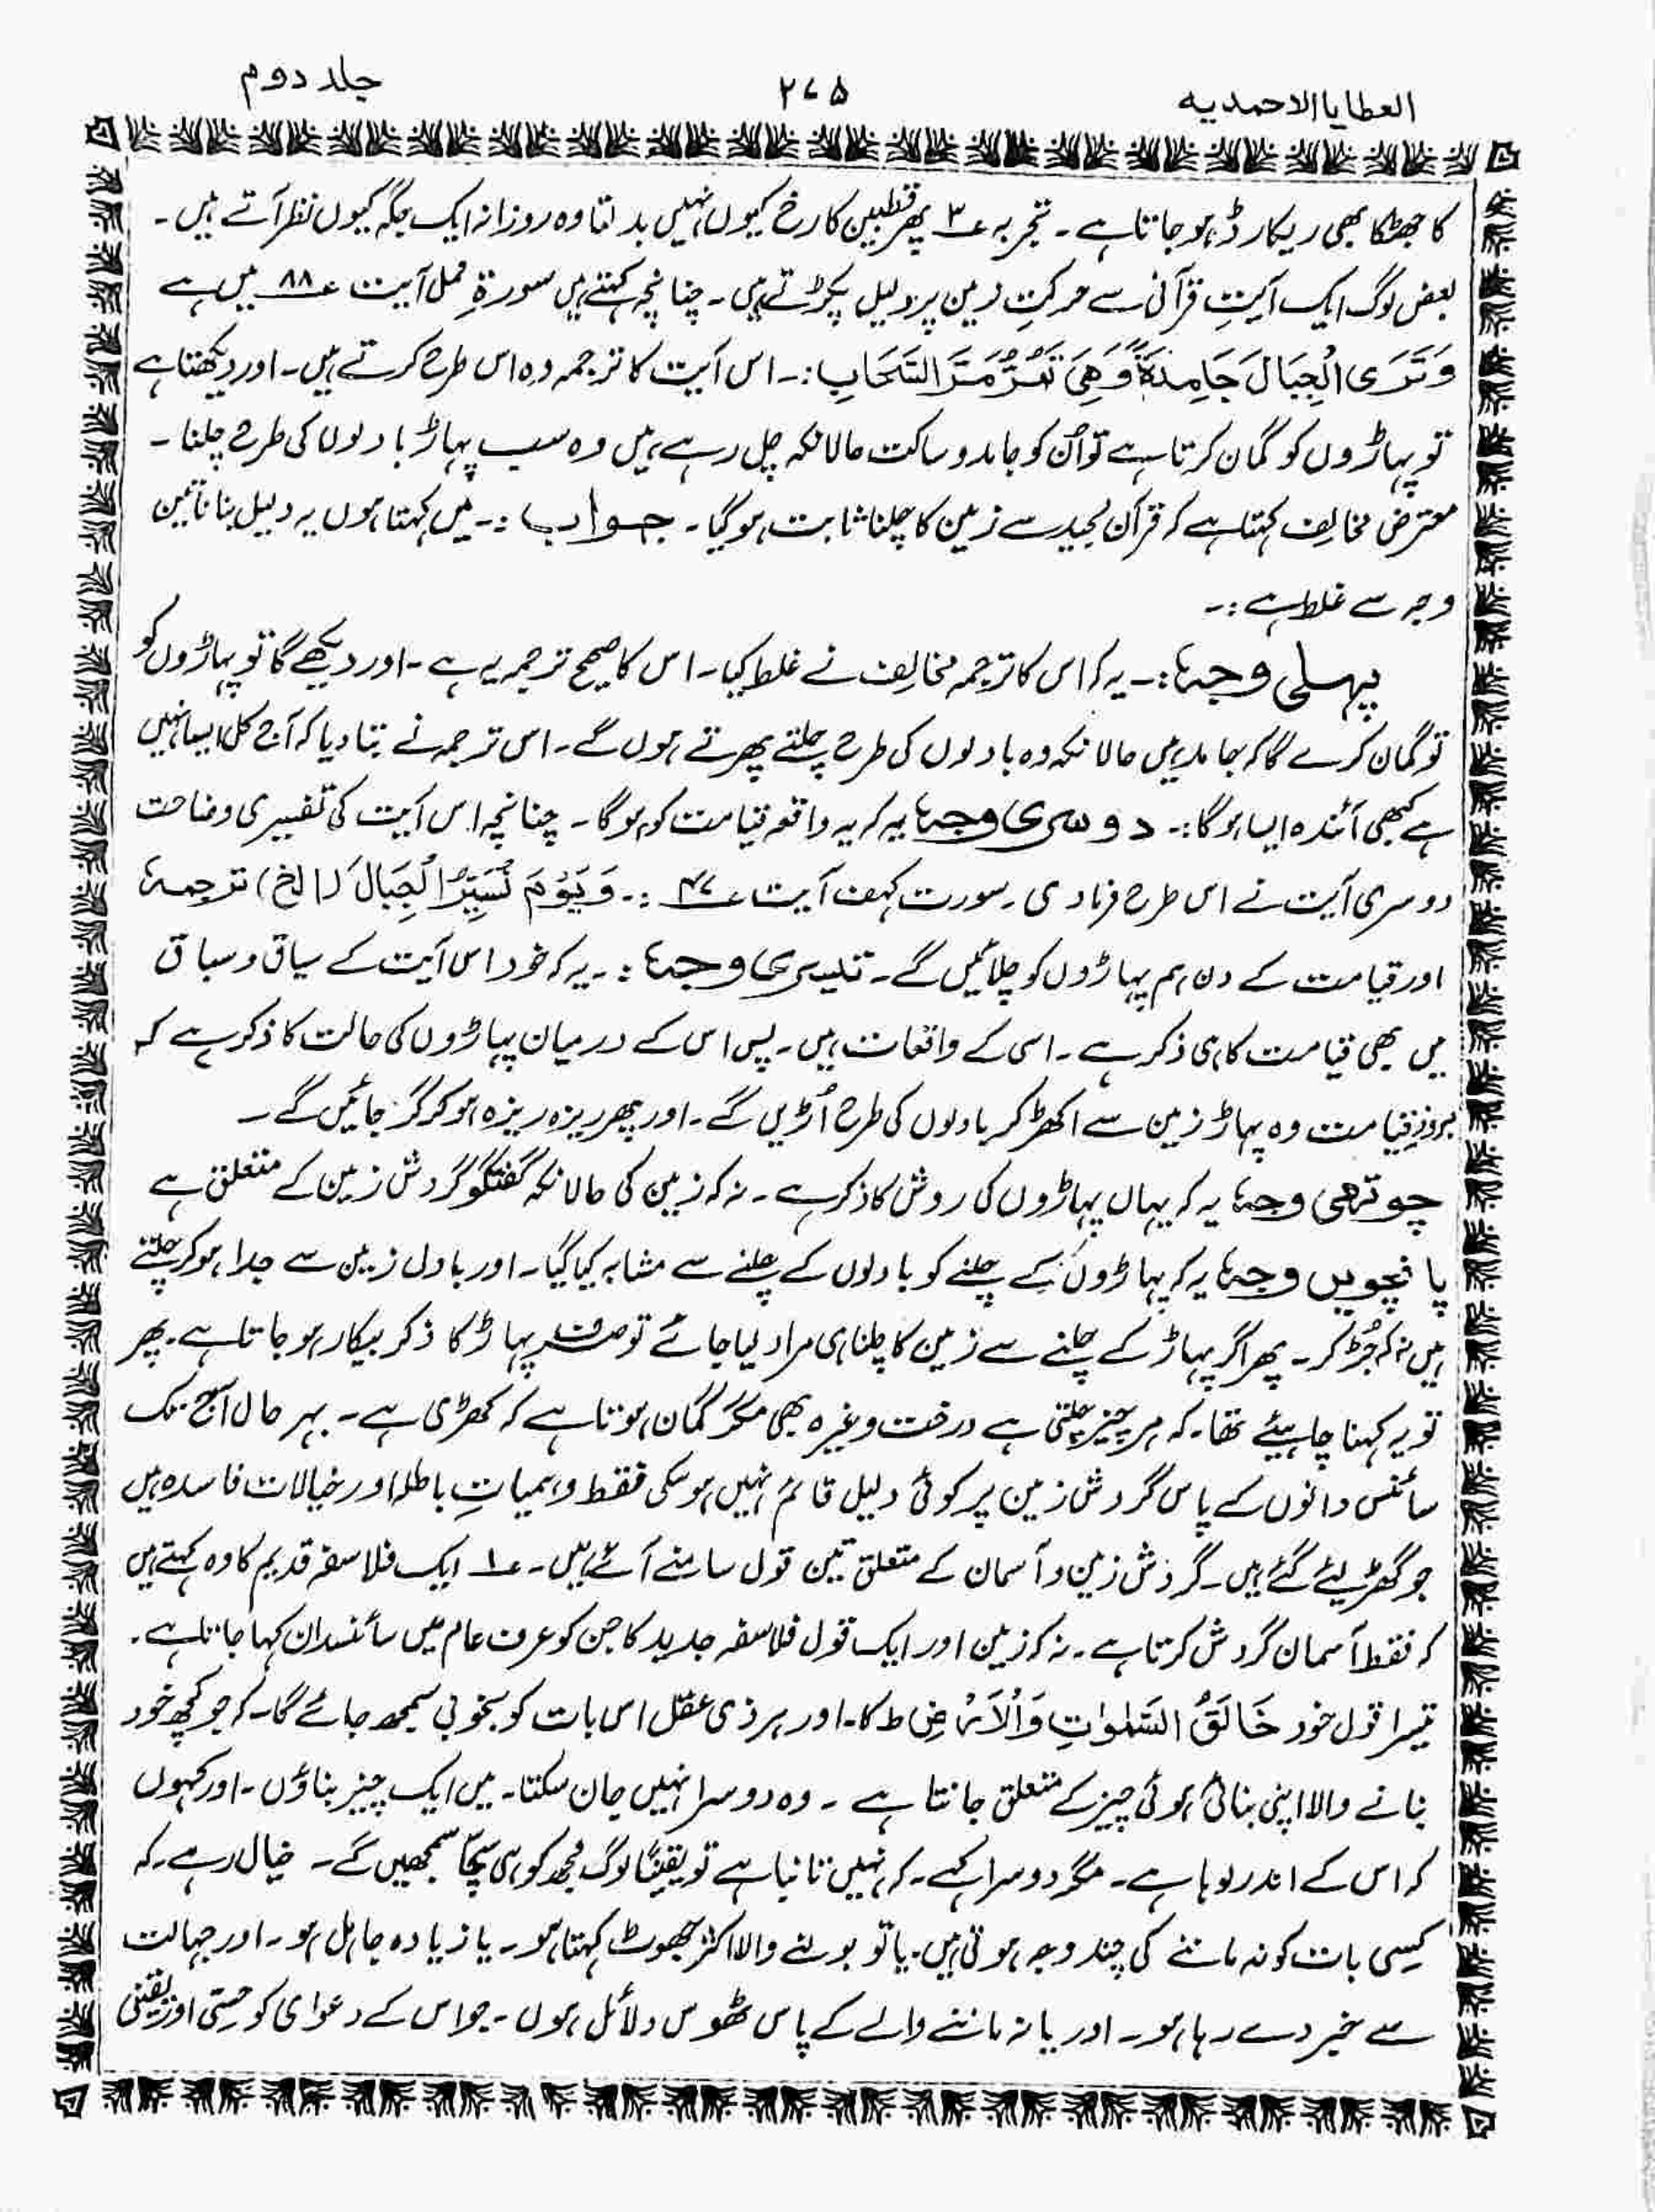 العطایا الاحمدیہ
۲۷۵
جلد دوم
کا جھٹکا بھی ریکارڈ ہو جاتا ہے۔ تجربہ ع۳ پھر قطبین کا رخ کیوں نہیں بدلتا وہ روزانہ ایک جگہ کیوں نظر آتے ہیں۔
بعض لوگ ایک آیتِ قرآنی سے حرکتِ زمین پر دلیل پکڑتے ہیں۔ چنانچہ کہتے ہیں سورۃ نمل آیت ع۸۸ میں ہے
وَتَرَى الْجِبَالَ جَامِدَةً وَّهِيَ تَمُرُّ مَرَّ السَّحَابِ :۔ اس آیت کا ترجمہ وہ اس طرح کرتے ہیں۔ اور دیکھتا ہے
تو پہاڑوں کو گمان کرتا ہے تو اُن کو جامد و ساکت حالانکہ چل رہے ہیں وہ سب پہاڑ بادلوں کی طرح چلنا۔
معترض مخالف کہتا ہے کہ قرآن مجید سے زمین کا چلنا ثابت ہو گیا۔ جواب :۔ میں کہتا ہوں یہ دلیل بنانا تین
وجہ سے غلط ہے :۔
پہلی وجہ :۔ یہ کہ اس کا ترجمہ مخالف نے غلط کیا۔ اس کا صحیح ترجمہ یہ ہے۔ اور دیکھے گا تو پہاڑوں کو
تو گمان کرے گا کہ جامد ہیں حالانکہ وہ بادلوں کی طرح چلتے پھرتے ہوں گے۔ اس ترجمہ نے بتا دیا کہ آج کل ایسا نہیں
ہے کبھی آئندہ ایسا ہو گا :۔ دوسری وجہ یہ کہ یہ واقعہ قیامت کو ہو گا۔ چنانچہ اس آیت کی تفسیری وضاحت
دوسری آیت نے اس طرح فرما دی۔ سورت کہف آیت ع۴۷ :۔ وَيَوْمَ نُسَيِّرُ الْجِبَالَ (الخ) ترجمہ
اور قیامت کے دن ہم پہاڑوں کو چلائیں گے۔ تیسری وجہ :۔ یہ کہ خود اس آیت کے سیاق و سباق
میں بھی قیامت کا ہی ذکر ہے۔ اسی کے واقعات ہیں۔ پس اس کے درمیان پہاڑوں کی حالت کا ذکر ہے کہ
بروزِ قیامت وہ پہاڑ زمین سے اکھڑ کر بادلوں کی طرح اُڑیں گے۔ اور پھر ریزہ ریزہ ہو کر گر جائیں گے۔
چوتھی وجہ یہ کہ یہاں پہاڑوں کی روش کا ذکر ہے۔ نہ کہ زمین کی حالانکہ گفتگو گردش زمین کے متعلق ہے
پانچویں وجہ یہ کہ پہاڑوں کے چلنے کو بادلوں کے چلنے سے مشابہ کیا گیا۔ اور بادل زمین سے جدا ہو کر چلتے
ہیں نہ کہ جُڑ کر۔ پھر اگر پہاڑ کے چلنے سے زمین کا چلنا ہی مراد لیا جائے تو صرف پہاڑ کا ذکر بیکار ہو جاتا ہے۔ پھر
تو یہ کہنا چاہیئے تھا۔ کہ ہر چیز چلتی ہے درخت وغیرہ بھی مگر گمان ہوتا ہے کہ کھڑی ہے۔ بہر حال آج تک
سائنس دانوں کے پاس گردش زمین پر کوئی دلیل قائم نہیں ہو سکی فقط وہمیاتِ باطلہ اور خیالات فاسدہ ہیں
جو گھڑ لیئے گئے ہیں۔ گردش زمین و آسمان کے متعلق تین قول سامنے آئے ہیں۔ ع۱ ایک فلاسفہ قدیم کا وہ کہتے ہیں
کہ فقط آسمان گردش کرتا ہے۔ نہ کہ زمین اور ایک قول فلاسفہ جدید کا جن کو عرف عام میں سائنسدان کہا جاتا ہے۔
تیسرا قول خود خَالِقُ السَّمٰوٰتِ وَالْاَرْضِ ط کا۔ اور ہر ذی عقل اس بات کو بخوبی سمجھ جائے گا۔ کہ جو کچھ خود
بنانے والا اپنی بنائی ہوئی چیز کے متعلق جانتا ہے۔ وہ دوسرا نہیں جان سکتا۔ میں ایک چیز بناؤں۔ اور کہوں
کہ اس کے اندر لوہا ہے۔ مگر دوسرا کہے۔ کہ نہیں تانبا ہے تو یقیناً لوگ مجھ کو ہی سچا سمجھیں گے۔ خیال رہے۔ کہ
کسی بات کو نہ ماننے کی چند وجہ ہوتی ہیں۔ یا تو بولنے والا اکثر جھوٹ کہتا ہو۔ یا زیادہ جاہل ہو۔ اور جہالت
سے خبر دے رہا ہو۔ اور یا نہ ماننے والے کے پاس ٹھوس دلائل ہوں۔ جو اس کے دعوای کو حسّی اور یقینی